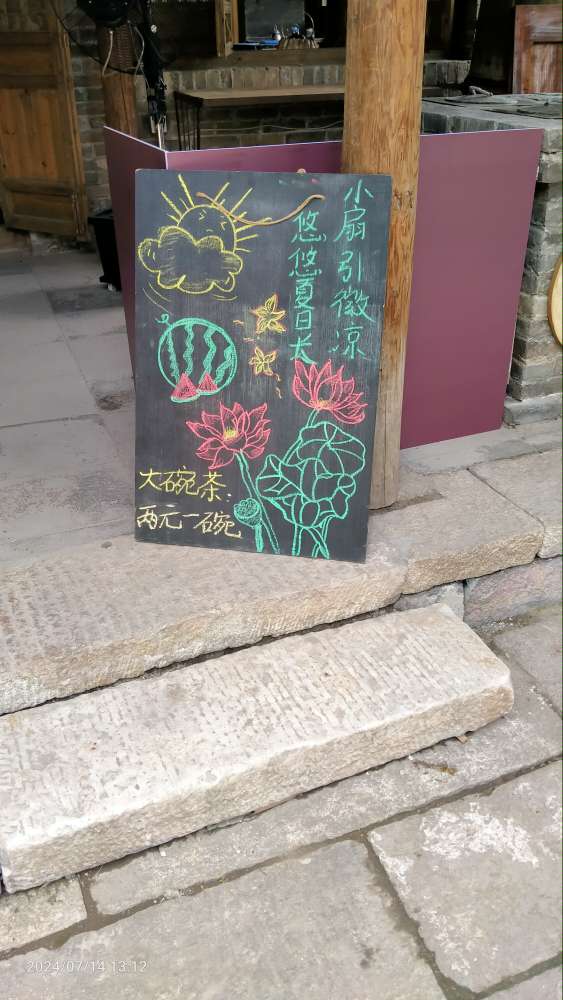 小扇引微凉
悠悠夏日长
大碗茶:
两元一碗
2024/07/14 13:12